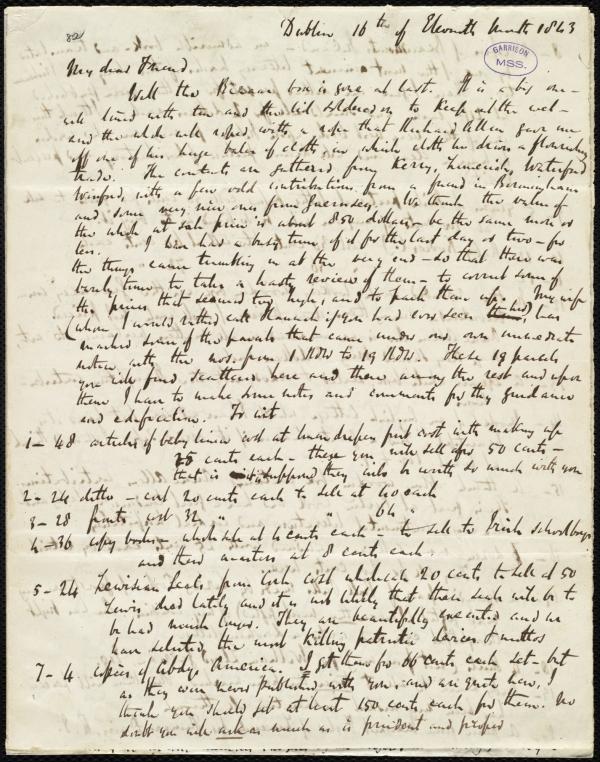 82
Dublin 16th of Eleventh Month 1843
GARRISON
MSS.
My dear Friend.
Well the Bazaar box is gone at last. It is a big one –
well lined with tin and the lid soldered on to keep out the wet –
and the whole well roped with a rope that Richard Allen gave me
off one of his huge bales of cloth, in which cloth he drives a flourishing
trade. The contents are gathered from Kerry, Limerick, Waterford
Wexford, with a few odd contributions from a friend in Birmingham
and some very nice ones from Guernsey. We think the value of
the whole at sale price is about 850 dollars – be the same more or
less. I have had a busy time of it for the last day or two – for
the things came tumbling in at the very end – so that there was
barely time to take a hasty review of them – to correct some of
the prices that seemed too high, and to pack them up. My wife
(whom I would rather call Hannah if you had ever seen her) has
marked some of the parcels that came under our own immediate
notice with the nos. from 1 to 19. These 19 parcels
you will find scattered here and there among the rest and upon
them I have to make some notes and comments for thy guidance
and edification. To wit
1 – 48 articles of baby linen cost at linendrapers first cost with making up
25 cents each – these you will sell for 50 cents –
that is supposing they will be worth so much with you
2 – 24 ditto – cost 20 cents each to sell at 40 each
3 – 28 fronts cost 32 " " 64 "
4 – 36 copy books – which sell at 4 cents each – to sell to Irish schoolboys
and their masters at 8 cents each.
5 – 24 Lewisian Seals from Cork cost wholesale 20 cents to sell at 50
Lewis died lately and it is not likely that these seals will be to
be had much longer. They are beautifully executed and we
have selected the most killing patriotic devices & mottos
7 – 4 copies of Abdy's America. I got them for 66 cents each set – but
as they were never published with you, and are quite new, I
think you should get at least 150 cents each for them. No
doubt you will ask as much as is prudent and proper